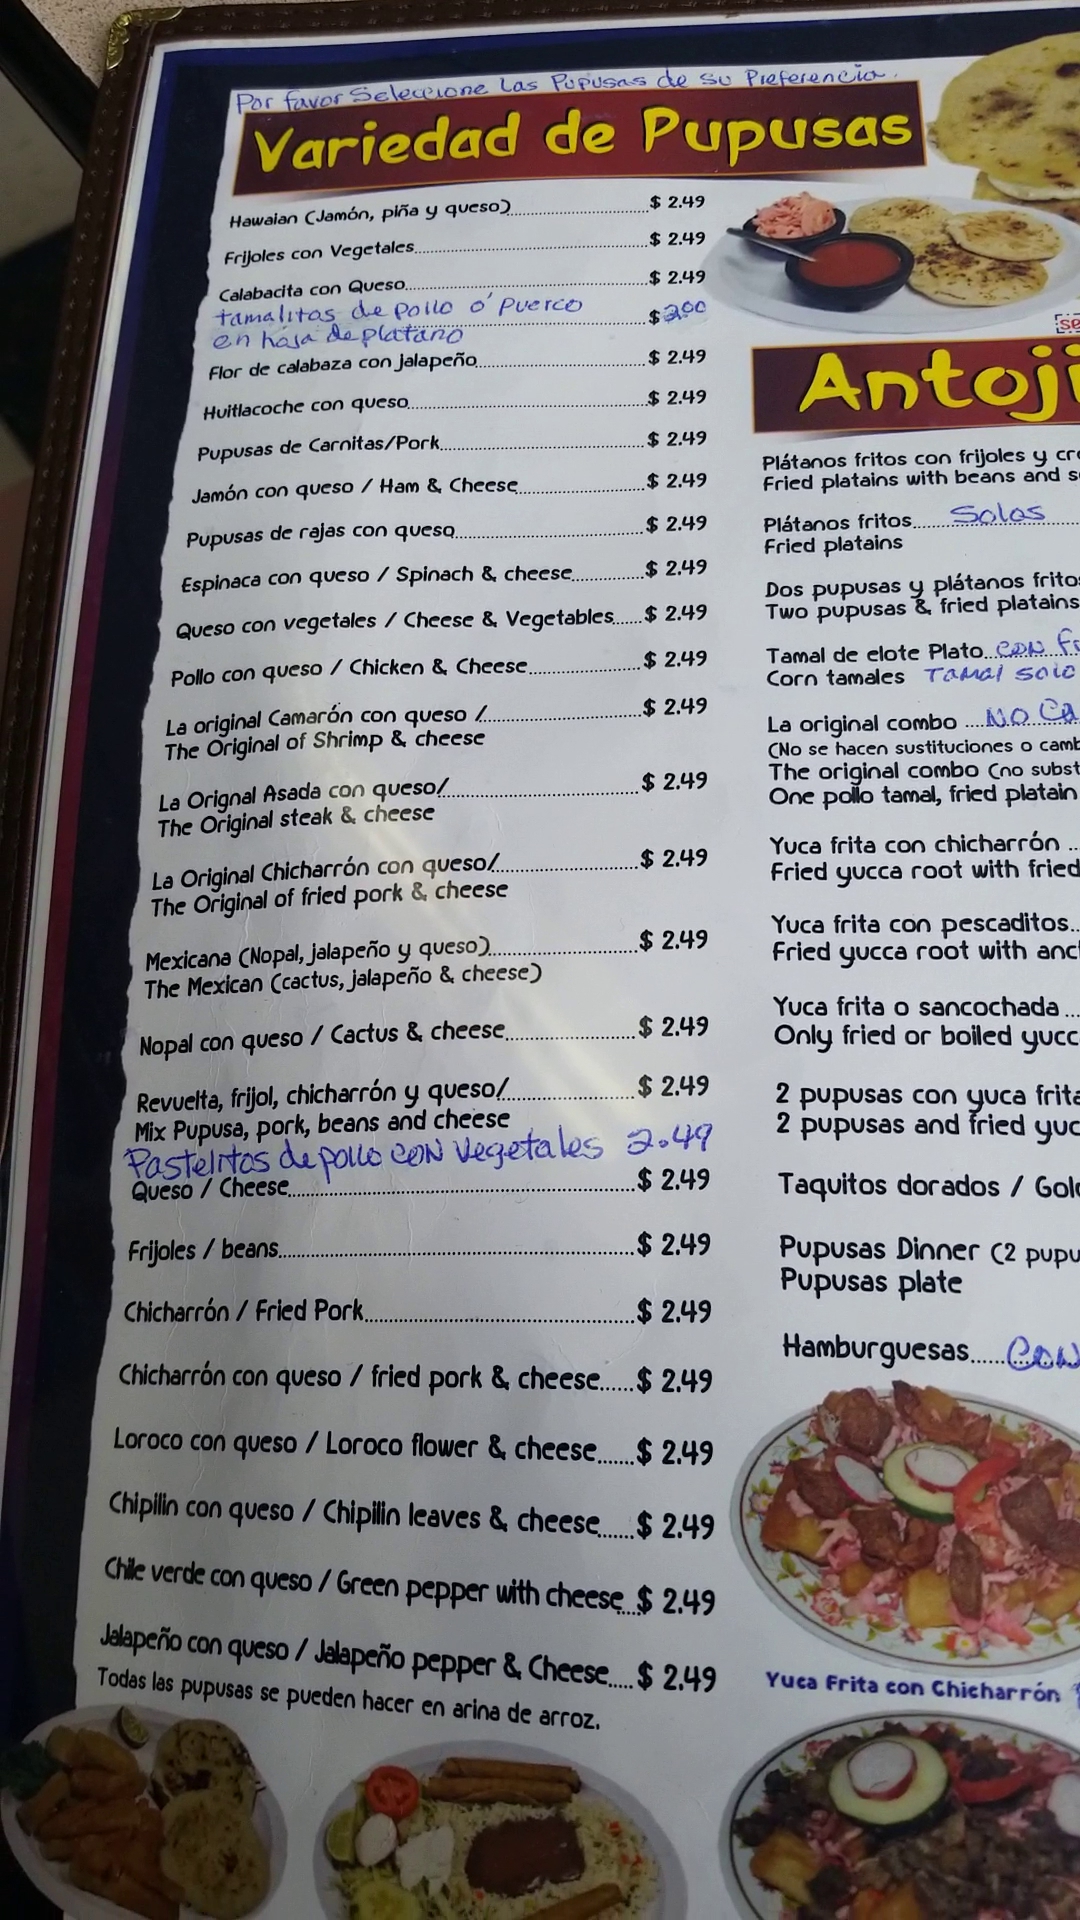 Por favor Seleccione Las Pupusas de su Preferencia.
Variedad de Pupusas
Hawaian (Jamón, piña y queso) $ 2.49
Frijoles con Vegetales $ 2.49
Calabacita con Queso $ 2.49
tamalitos de pollo ó puerco
en hoja de platano $ 2.00
Flor de calabaza con jalapeño $ 2.49
Huitlacoche con queso $ 2.49
Pupusas de Carnitas/Pork $ 2.49
Jamón con queso / Ham & Cheese $ 2.49
Pupusas de rajas con queso $ 2.49
Espinaca con queso / Spinach & cheese $ 2.49
Queso con vegetales / Cheese & Vegetables $ 2.49
Pollo con queso / Chicken & Cheese $ 2.49
La original Camarón con queso / $ 2.49
The Original of Shrimp & cheese
La Orignal Asada con queso/ $ 2.49
The Original steak & cheese
La Original Chicharrón con queso/ $ 2.49
The Original of fried pork & cheese
Mexicana (Nopal, jalapeño y queso) $ 2.49
The Mexican (cactus, jalapeño & cheese)
Nopal con queso / Cactus & cheese $ 2.49
Revuelta, frijol, chicharrón y queso/ $ 2.49
Mix Pupusa, pork, beans and cheese
Pastelitos de pollo con vegetales 2.49
Queso / Cheese $ 2.49
Frijoles / beans $ 2.49
Chicharrón / Fried Pork $ 2.49
Chicharrón con queso / fried pork & cheese $ 2.49
Loroco con queso / Loroco flower & cheese $ 2.49
Chipilin con queso / Chipilin leaves & cheese $ 2.49
Chile verde con queso / Green pepper with cheese $ 2.49
Jalapeño con queso / Jalapeño pepper & Cheese $ 2.49
Todas las pupusas se pueden hacer en arina de arroz.
Antoji
Plátanos fritos con frijoles y cr
Fried platains with beans and s
Plátanos fritos Solos
Fried platains
Dos pupusas y plátanos fritos
Two pupusas & fried platains
Tamal de elote Plato con Fr
Corn tamales Tamal solo
La original combo No Ca
(No se hacen sustituciones o camb
The original combo (no subst
One pollo tamal, fried platain
Yuca frita con chicharrón
Fried yucca root with fried
Yuca frita con pescaditos
Fried yucca root with anc
Yuca frita o sancochada
Only fried or boiled yucc
2 pupusas con yuca frita
2 pupusas and fried yuc
Taquitos dorados / Gol
Pupusas Dinner (2 pupu
Pupusas plate
Hamburguesas Con
Yuca Frita con Chicharrón